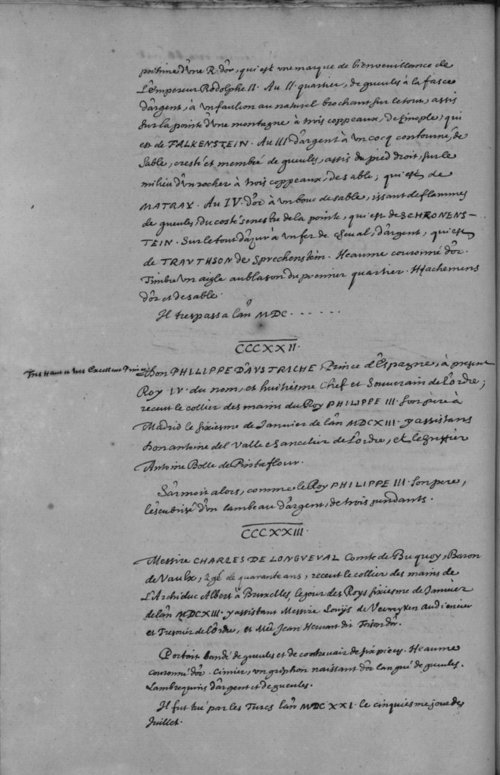 poitrine d'une R. d'or, qui est une marque de bienveuillance de
L'Empereur Rodolphe II. Au II quartier, de gueules à la fasce
d'argent, à un faulcon au naturel brochant sur le tout, assis
sur la pointe d'une montagne à trois coppeaux, de sinople; qui
est de FALKENSTEIN. Au III d'argent à un cocq contourné, de
sable, cresté et membré de gueules, assis du pied droit, sur le
milieu d'un rocher à trois coppeaux, de sable; qui est de
MATRAY. Au IV. d'or à un bouc de sable, issant de flammes
de gueules, du costé senestre de la pointe, qui est de SCHRONENS-
TEIN. Sur le tout d'azur à un fer de cheval, d'argent, qui est
de TRAUTHSON de Sprechenstein. Heaume couronné d'or.
Timbre un aigle au blason du premier quartier. Hachemens
d'or et de sable.
Il trespassa l'an MDC . . . . . .
CCCXXII.
Tres Haut et tres Excellent Prince
Don PHILIPPE D'AUSTRICHE Prince d'Espagne, à present
Roy IV. du nom, et huitiesme Chef et Souverain de l'ordre;
receut le collier des mains du Roy PHILIPPE III. son pere à
Madrid le sixiesme de Janvier de l'an MDCXIII. y assistans
Don Antoine del Valle Chancelier de l'ordre, et le greffier
Antoine Bolle de Pintaflour.
S'armoit alors, comme le Roy PHILIPPE III. son pere,
l'escu brisé d'un lambeau d'argent, de trois pendants.
CCCXXIII.
Messire CHARLES DE LONGUEVAL Comte de Buquoy, Baron
de Vaulx, agé de quarante ans, receut le collier des mains de
L'Archiduc Albert à Bruxelles, le jour des Roys sixiesme de Janvier
de l'an MDCXIII. y assistans Messire Louys de Verreyken Audiencier
et Tresorier de l'ordre, et Jean Hernart dit Toison d'or.
Portoit bandé de gueules et de contrevair de six pieces. Heaume
couronné d'or. Cimier, un gryphon naissant d'or langué de gueules.
Lambrequins d'argent et de gueules.
Il fut tué par les Turcs l'an MDCXXI. le cinquiesme jour des
Juillet.